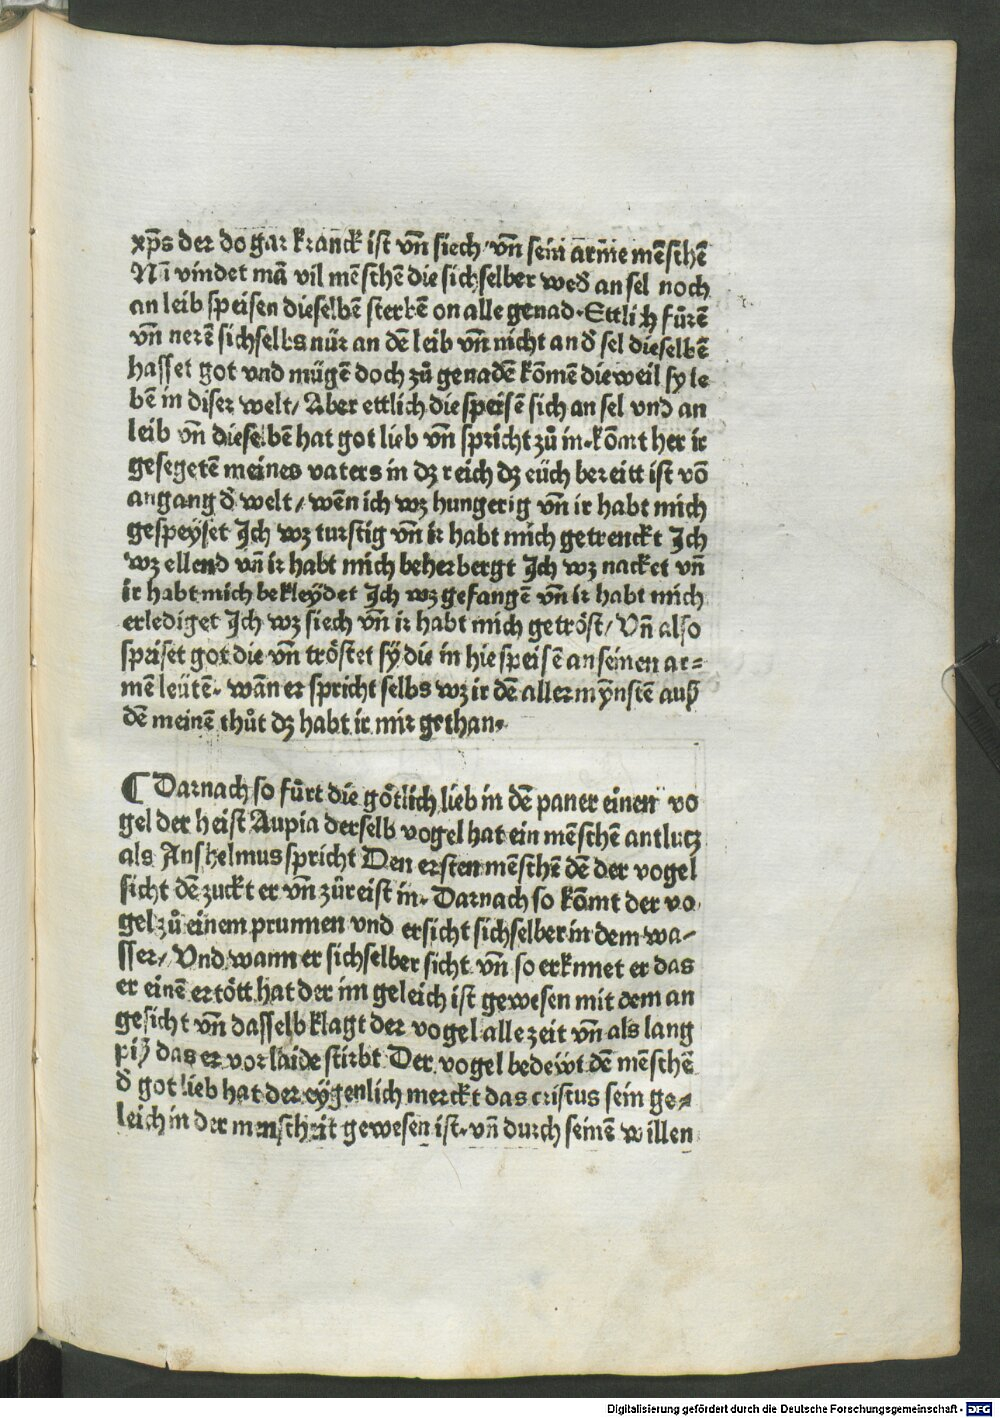 xp̄s der do gar kranck ist vn̄ siech/ vn̄ sein arm̄e mēschē
Nū vindet mā vil mēschē die sich selber wed̄ an sel noch
an leib speisen dieselbē sterbē on alle genad. Ettlich fůrē
vn̄ nerē sich selbs nür an dē leib vn̄ nicht an d̄ sel dieselbē
hasset got vnd mügē doch zů genadē kōmē die weil sy le
bē in diser welt/ Aber ettlich die speisē sich an sel vnd an
leib vn̄ dieselbē hat got lieb vn̄ spricht zů in. kōmt her ir
gesegetē meines vaters in dz reich dz eüch bereitt ist vō
angang d̄ welt/ wēn ich wz hungerig vn̄ ir habt mich
gespeÿset Ich wz turstig vn̄ ir habt mich getrenckt Ich
wz ellend vn̄ ir habt mich beherbergt Ich wz nacket vn̄
ir habt mich bekleÿdet Ich wz gefangē vn̄ ir habt mich
erlediget Ich wz siech vn̄ ir habt mich getröst/ Vn̄ also
speiset got die vn̄ tröstet sÿ die in hie speisē an seinen ar=
mē leütē. wān er spricht selbs wz ir dē aller mÿnstē auß
dē meinē thůt dz habt ir mir gethan.
¶ Darnach so fůrt die götlich lieb in dē paner einen vo
gel der heist Aupia derselb vogel hat ein mēschē antlutz
als Anshelmus spricht Den ersten mēschē dē der vogel
sicht dē zuckt er vn̄ zůreist in. Darnach so kōmt der vo
gel zů einem prunnen vnd ersicht sich selber in dem wa=
sser/ Vnd wann er sich selber sicht vn̄ so erknnet er das
er einē ertött hat der im geleich ist gewesen mit dem an
gesicht vn̄ dasselb klagt der vogel alle zeit vn̄ als lang
piß das er vor laide stirbt Der vogel bedeẅt dē mēschē
d̄ got lieb hat der eÿgenlich merckt das cristus sein ge=
leich in der menscheit gewesen ist. vn̄ durch seinē willen
Digitalisierung gefördert durch die Deutsche Forschungsgemeinschaft - DFG